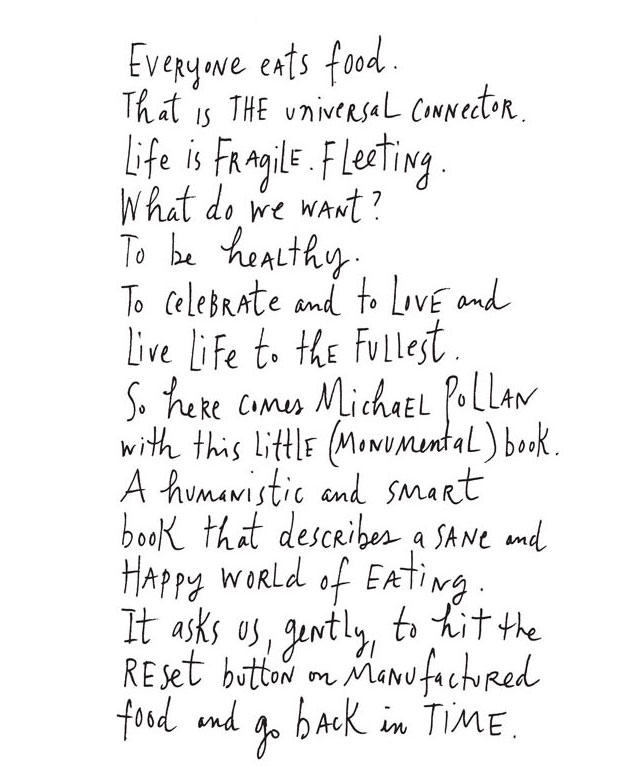 Everyone eats food.
That is THE universal connector.
Life is Fragile. Fleeting.
What do we want?
To be healthy.
To celebrate and to Love and
Live Life to the Fullest.
So here comes Michael Pollan
with this little (Monumental) book.
A humanistic and smart
book that describes a sane and
Happy world of Eating.
It asks us, gently, to hit the
Reset button on Manufactured
food and go back in TiME.